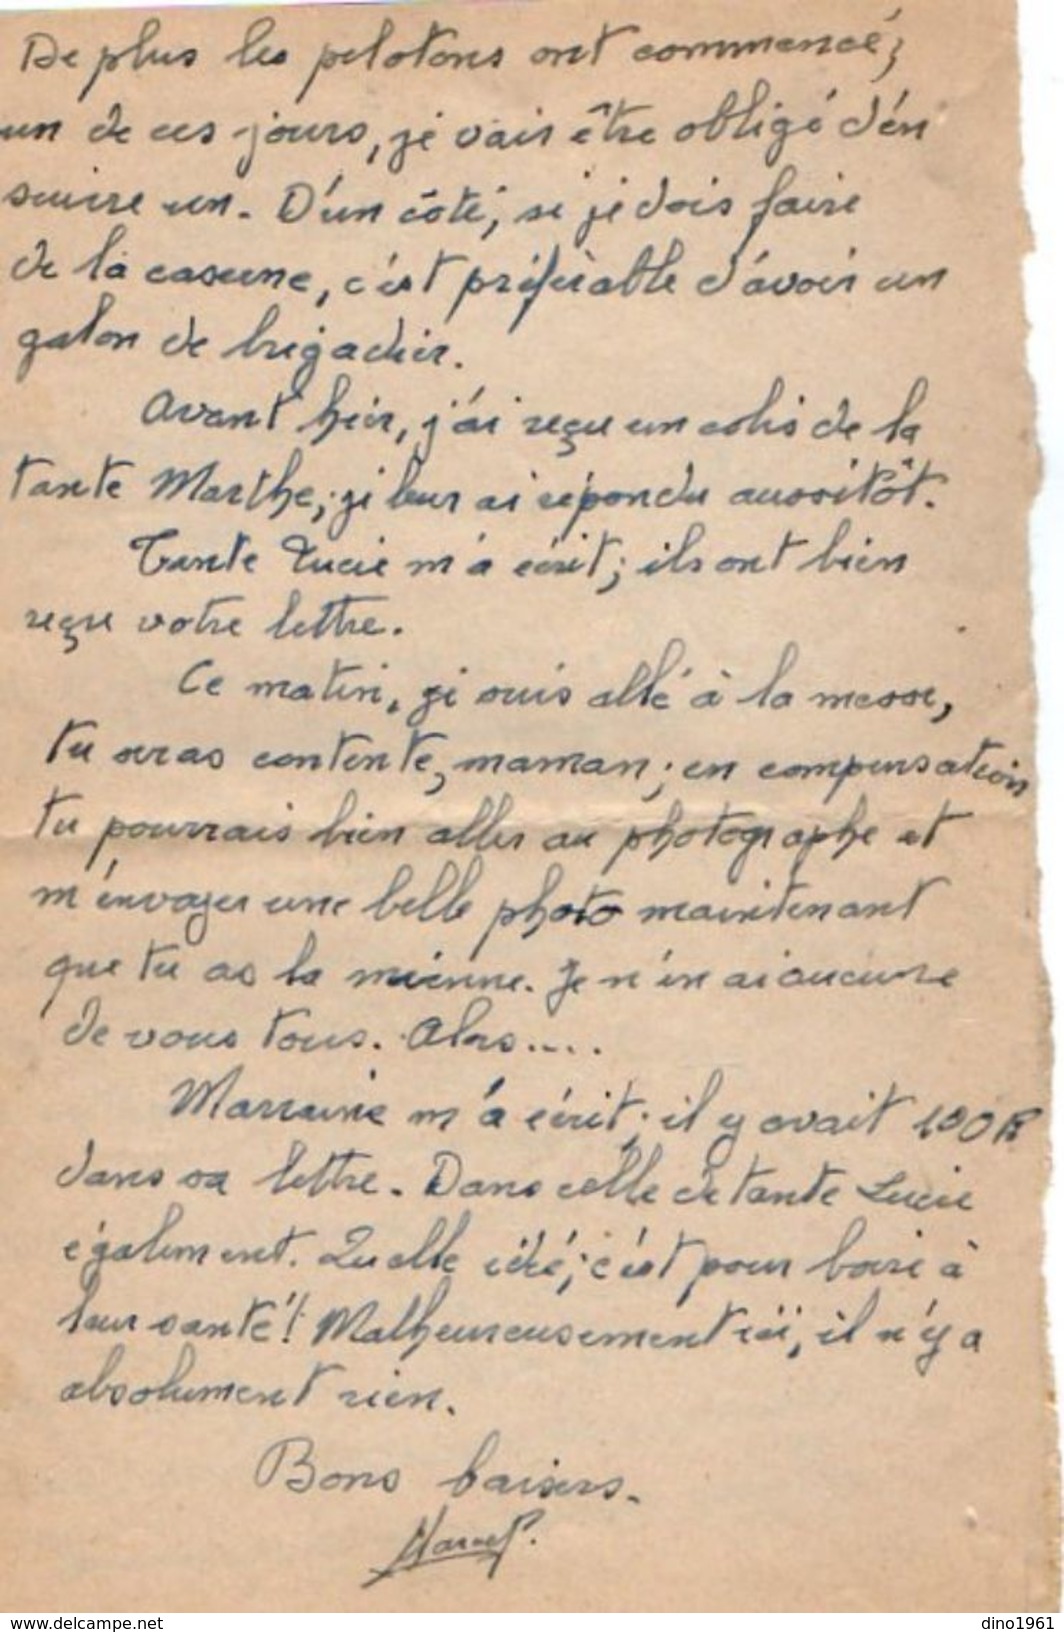 De plus les pelotons ont commencé;
un de ces jours, je vais être obligé d'en
suivre un. D'un côté, si je dois faire
de la caserne, c'est préférable d'avoir un
galon de brigadier.
Avant hier, j'ai reçu un colis de la
tante Marthe; je leur ai répondu aussitôt.
Tante Lucie m'a écrit; ils ont bien
reçu votre lettre.
Ce matin, je suis allé à la messe,
tu seras contente, maman; en compensation
tu pourrais bien aller au photographe et
m'envoyer une belle photo maintenant
que tu as la mienne. Je n'en ai aucune
de vous tous. Alors....
Marraine m'a écrit; il y avait 100 Fr
dans sa lettre. Dans celle de tante Lucie
également. Quelle idée; c'est pour boire à
leur santé! Malheureusement ici, il n'y a
absolument rien.
Bons baisers.
Marcel.
https://www.delcampe.net
dino1961